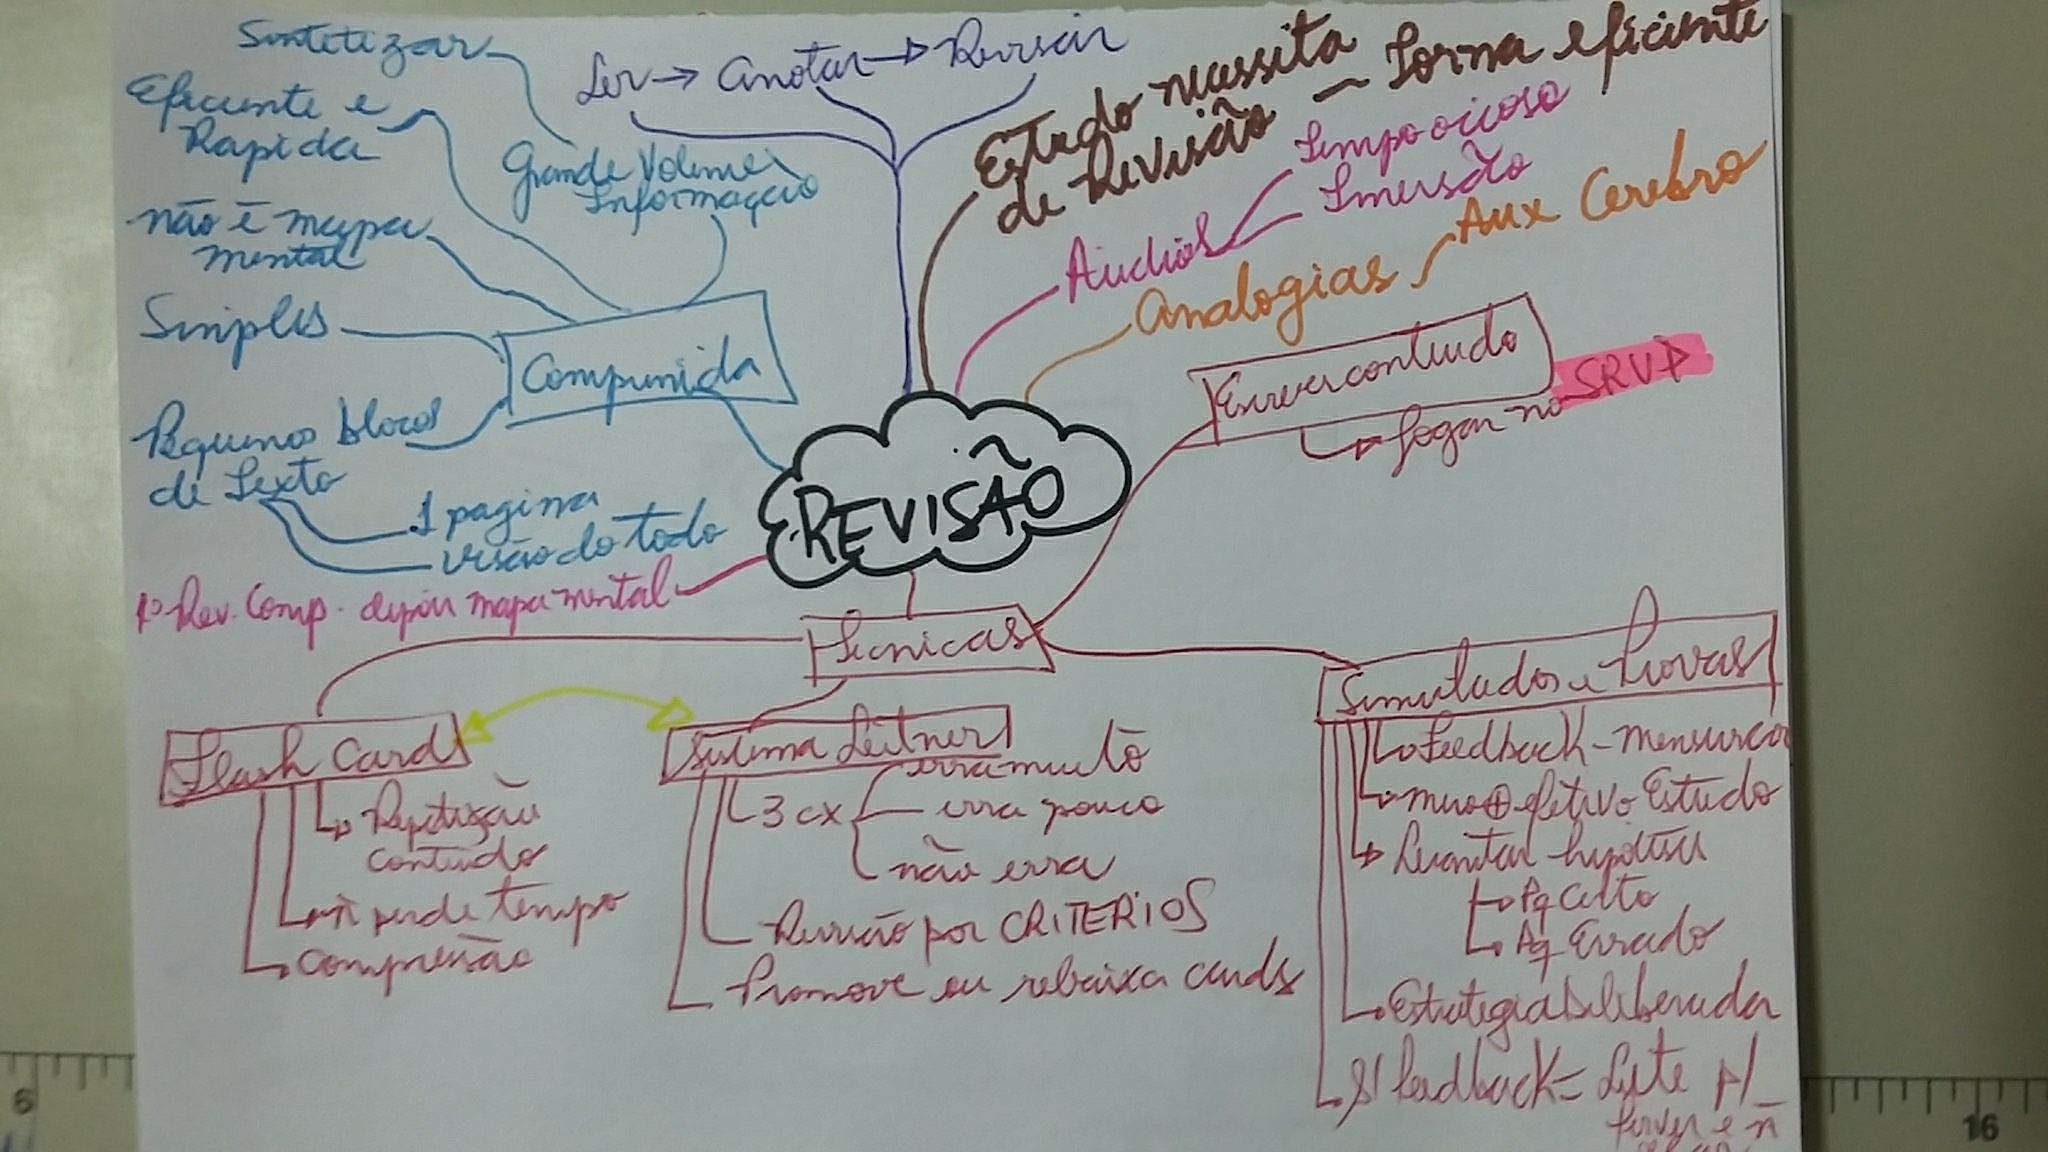 Sintetizar
Ler → anotar → Revisar
Estudo necessita
de Revisão — Forma eficiente
Eficiente e
Rapida
Grande Volume
Informação
Áudios
Tempo ocioso
Imersão
não é mapa
mental
Analogias
Aux Cerebro
Simples
Comprimida
Escrever conteudo
Jogar no SRVP
Pequenos blocos
de Texto
1 pagina
visão do todo
REVISÃO
1º Rev. Comp. depois mapa mental
Técnicas
Flash Cards
Repetição
conteudo
ñ perde tempo
compressão
Sistema Leitner
3 cx
erra muito
erra pouco
não erra
Revisão por CRITERIOS
Promove ou rebaixa cards
Simulados e Provas
Feedback - mensurar
⊕ efetivo Estudo
Levantar hipotese
Pq Certo
Pq Errado
Estrategia Deliberada
S/ Feedback =